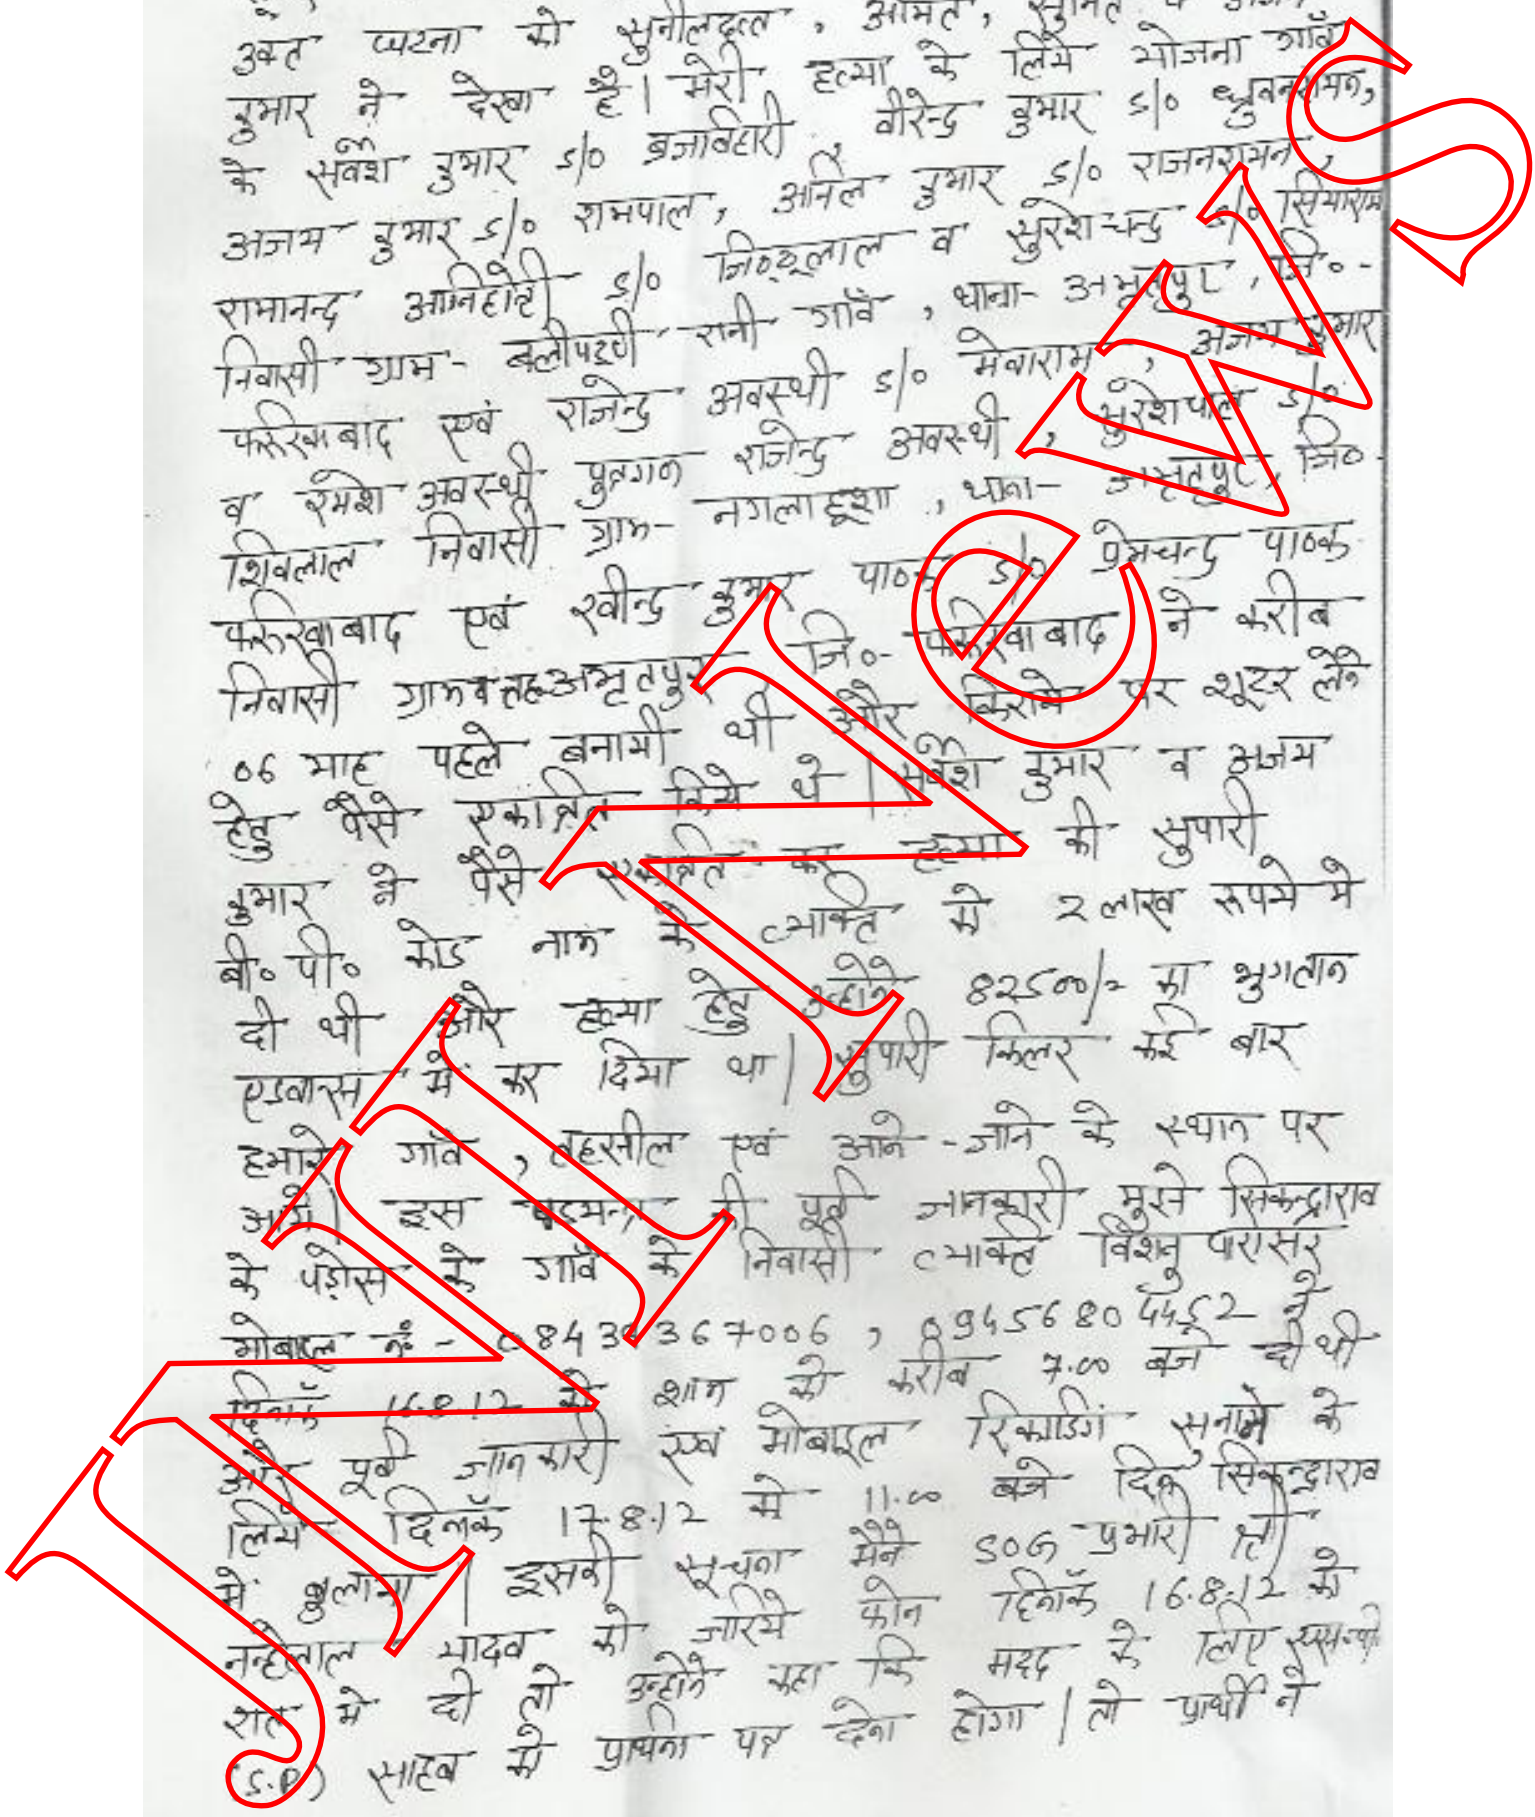 उक्त घटना को सुनीलदत्त, अमित, सुमित व
कुमार ने देखा है। मेरी हत्या के लिये योजना गाँव
के सर्वेश कुमार S/o ब्रजबिहारी, वीरेन्द्र कुमार S/o
अजय कुमार S/o रामपाल, अनिल कुमार S/o राजनरायन,
रामानन्द अग्निहोत्री S/o व सुरेशचन्द्र S/o सियाराम
निवासी ग्राम- बलीपट्टी रानी गाँव, थाना- अमृतपुर, जि०-
फर्रूखाबाद एवं राजेन्द्र अवस्थी S/o मेवाराम, अजय कुमार
व रमेश अवस्थी पुत्रगण राजेन्द्र अवस्थी, सुरेशपाल S/o
शिवलाल निवासी ग्राम- नगलाहूशा, थाना- अमृतपुर, जि०-
फर्रूखाबाद एवं रवीन्द्र कुमार पाठक S/o प्रेमचन्द्र पाठक
निवासी ग्राम व तह० अमृतपुर जि०- फर्रूखाबाद ने करीब
06 माह पहले बनायी थी और किराये पर शूटर लेने
हेतु पैसे एकत्रित किये थे। सर्वेश कुमार व अजय
कुमार ने पैसे एकत्रित कर हत्या की सुपारी
बी० पी० कोड नाम के व्यक्ति को 2 लाख रूपये मे
दी थी और हत्या हेतु उन्होने 82500/= का भुगतान
एडवान्स में कर दिया था। सुपारी किलर कई बार
हमारे गाँव, तहसील एवं आने-जाने के स्थान पर
आये। इस षडयन्त्र की पूर्व जानकारी मुझे सिकन्द्राराव
के पड़ोस के गाँव के निवासी व्यक्ति विशनु पारासर
मोबाइल नं०- 08439367006, 09456804452 ने
दिनाँक 16.8.12 को शाम को करीब 7.00 बजे दी थी
और पूर्व जानकारी एवं मोबाइल रिकार्डिंग सुनाने के
लिये दिनाँक 17.8.12 को 11.00 बजे दिन सिकन्द्राराव
में बुलाया। इसकी सूचना मैंने SOG प्रभारी श्री
नन्हेलाल यादव को जरिये फोन दिनाँक 16.8.12 को
रात मे दी तो उन्होने कहा कि मदद के लिए
(S.P.) साहब को प्रार्थना पत्र देना होगा। तो प्रार्थी ने
JNI NeWS